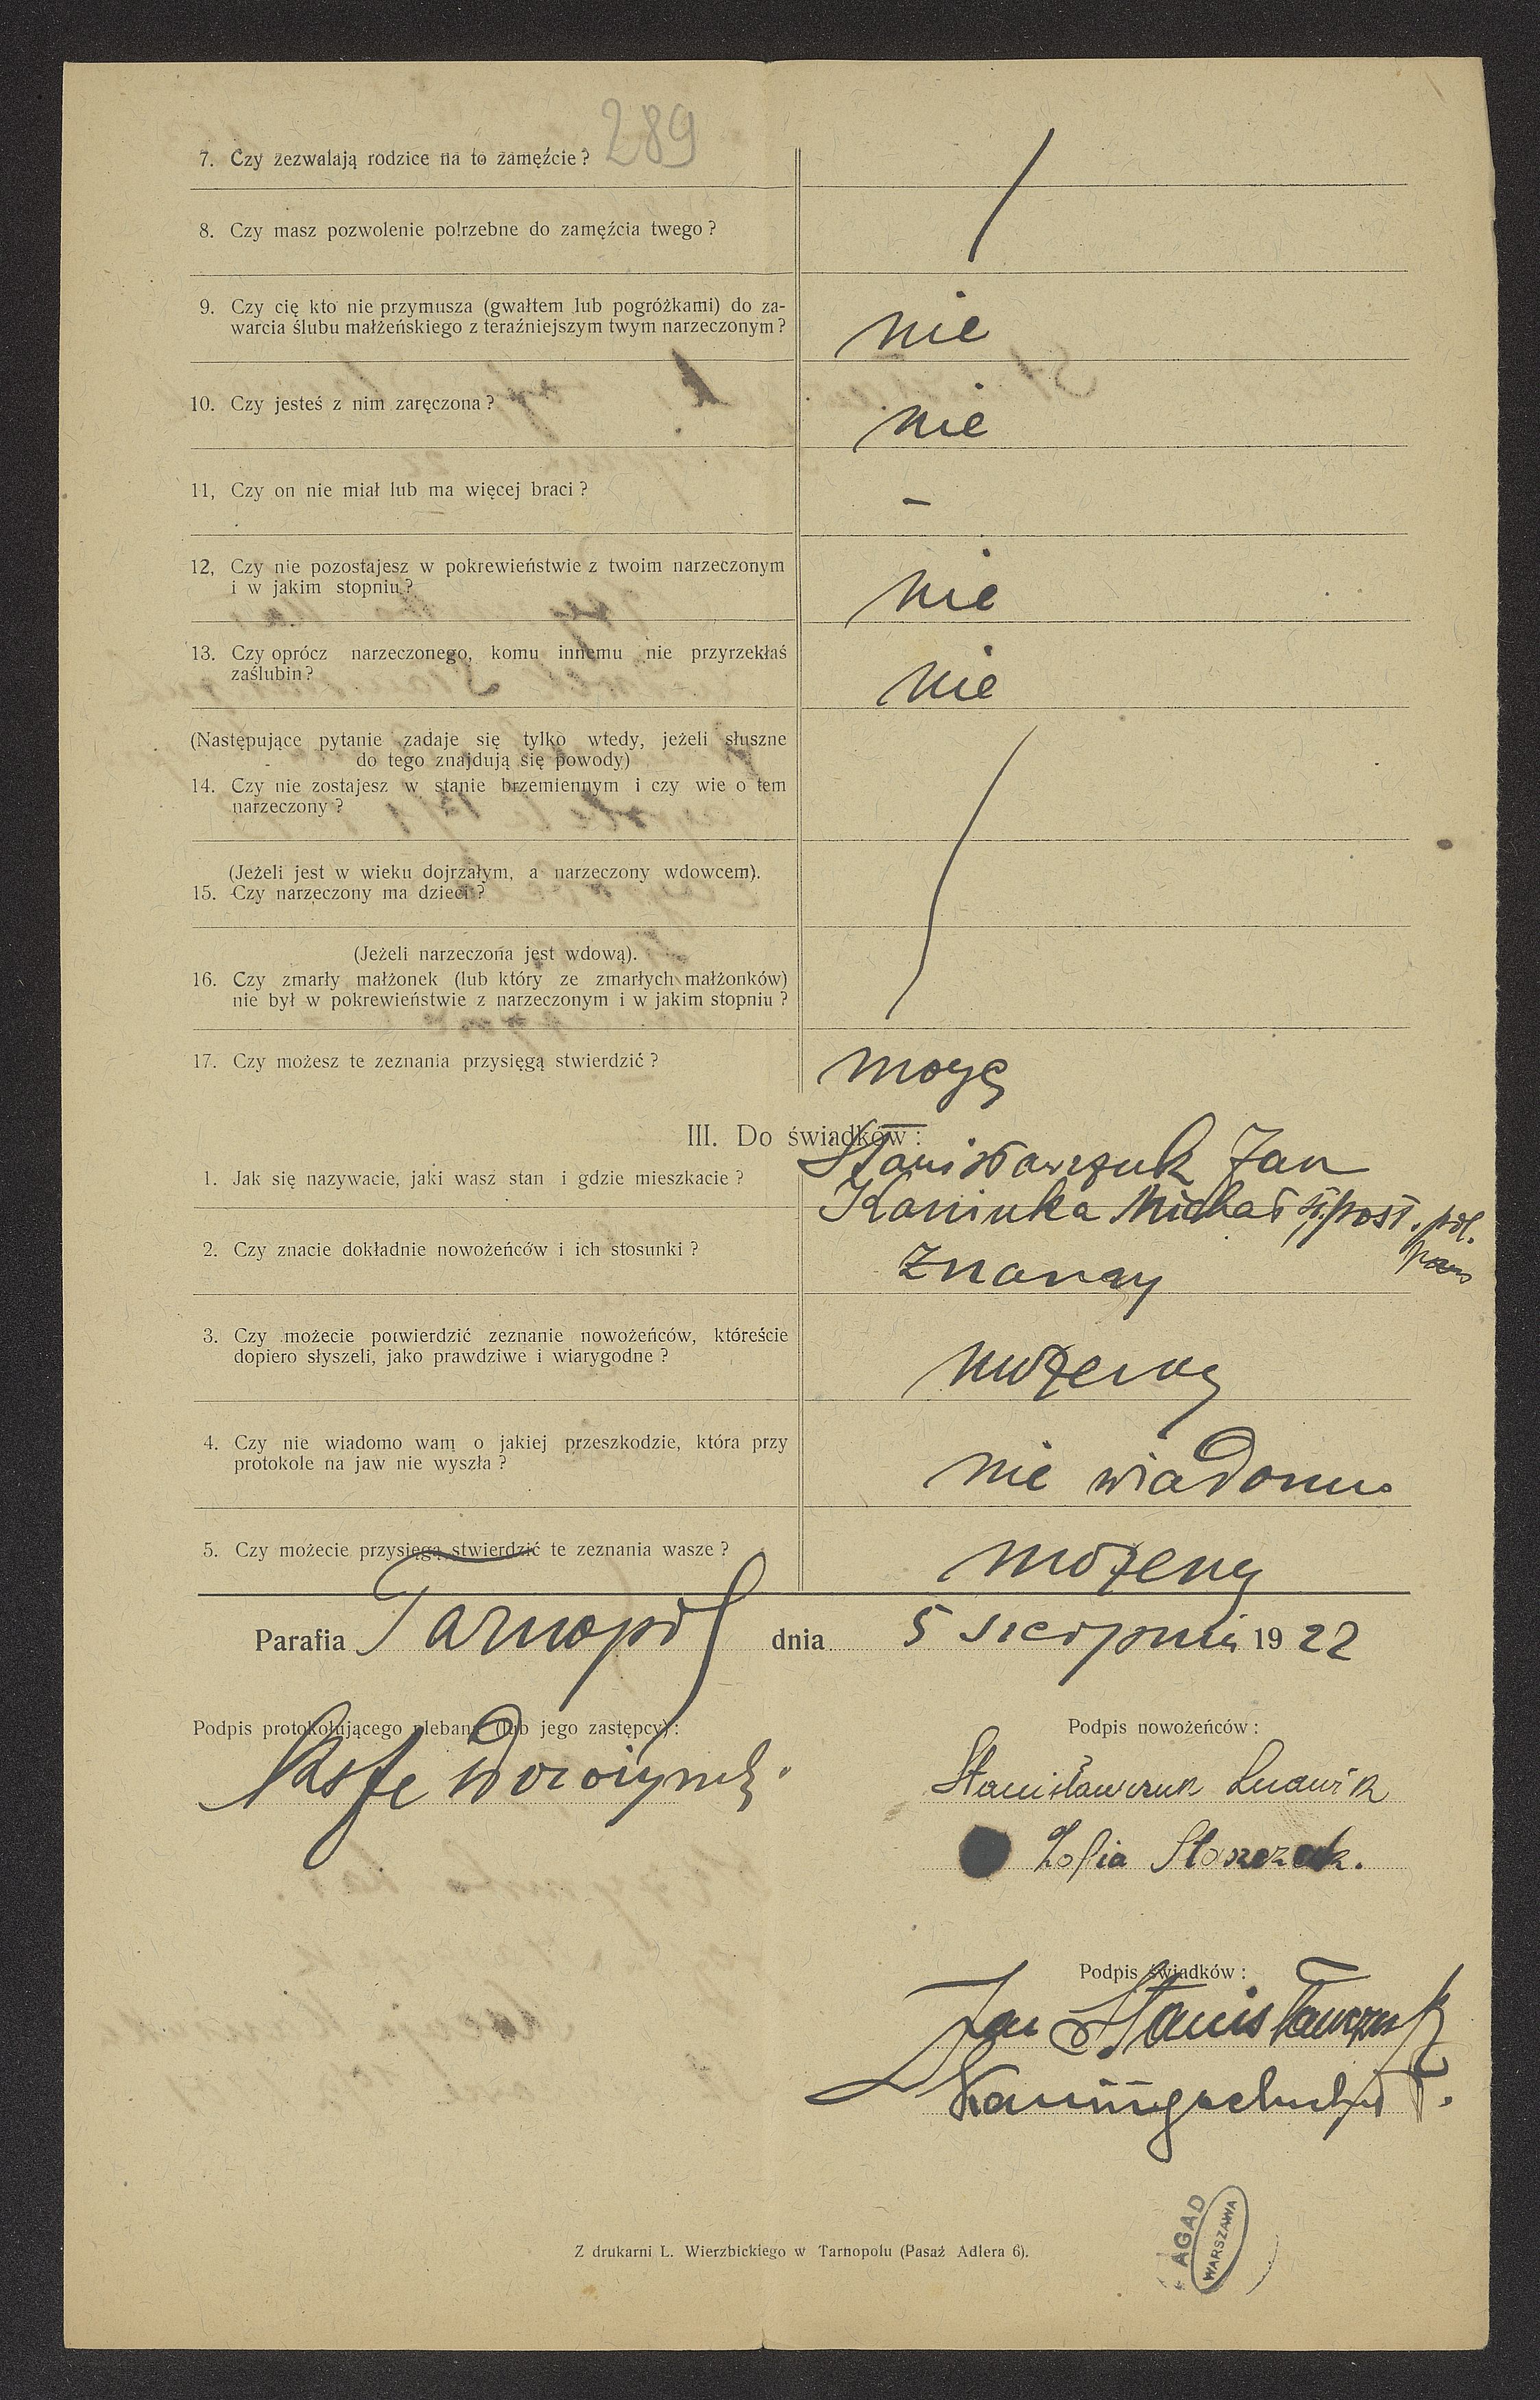 289
7. Czy zezwalają rodzice na to zamęźcie?
8. Czy masz pozwolenie potrzebne do zamęźcia twego?
9. Czy cię kto nie przymusza (gwałtem lub pogróżkami) do za-
warcia ślubu małżeńskiego z teraźniejszym twym narzeczonym? nie
10. Czy jesteś z nim zaręczona? nie
11, Czy on nie miał lub ma więcej braci? –
12, Czy nie pozostajesz w pokrewieństwie z twoim narzeczonym
i w jakim stopniu? nie
13. Czy oprócz narzeczonego, komu innemu nie przyrzekłaś
zaślubin? nie
(Następujące pytanie zadaje się tylko wtedy, jeżeli słuszne
do tego znajdują się powody)
14. Czy nie zostajesz w stanie brzemiennym i czy wie o tem
narzeczony?
(Jeżeli jest w wieku dojrzałym, a narzeczony wdowcem).
15. Czy narzeczony ma dzieci?
(Jeżeli narzeczona jest wdową).
16. Czy zmarły małżonek (lub który ze zmarłych małżonków)
nie był w pokrewieństwie z narzeczonym i w jakim stopniu?
17. Czy możesz te zeznania przysięgą stwierdzić? mogę
III. Do świadków:
Stanisławczuk Jan
1. Jak się nazywacie, jaki wasz stan i gdzie mieszkacie?
Kaniuka Michał st. post. pol.
2. Czy znacie dokładnie nowożeńców i ich stosunki? znamy
3. Czy możecie potwierdzić zeznanie nowożeńców, któreście
dopiero słyszeli, jako prawdziwe i wiarygodne? możemy
4. Czy nie wiadomo wam o jakiej przeszkodzie, która przy
protokole na jaw nie wyszła? nie wiadomo
5. Czy możecie przysięgą stwierdzić te zeznania wasze? możemy
Parafia Tarnopol dnia 5 sierpnia 1922
Podpis protokołującego plebana (lub jego zastępcy):
Podpis nowożeńców:
Stanisławczuk Ludwik
Zofia Stoszczak.
Podpis świadków:
Jan Stanisławczuk
Z drukarni L. Wierzbickiego w Tarnopolu (Pasaż Adlera 6).
AGAD
WARSZAWA